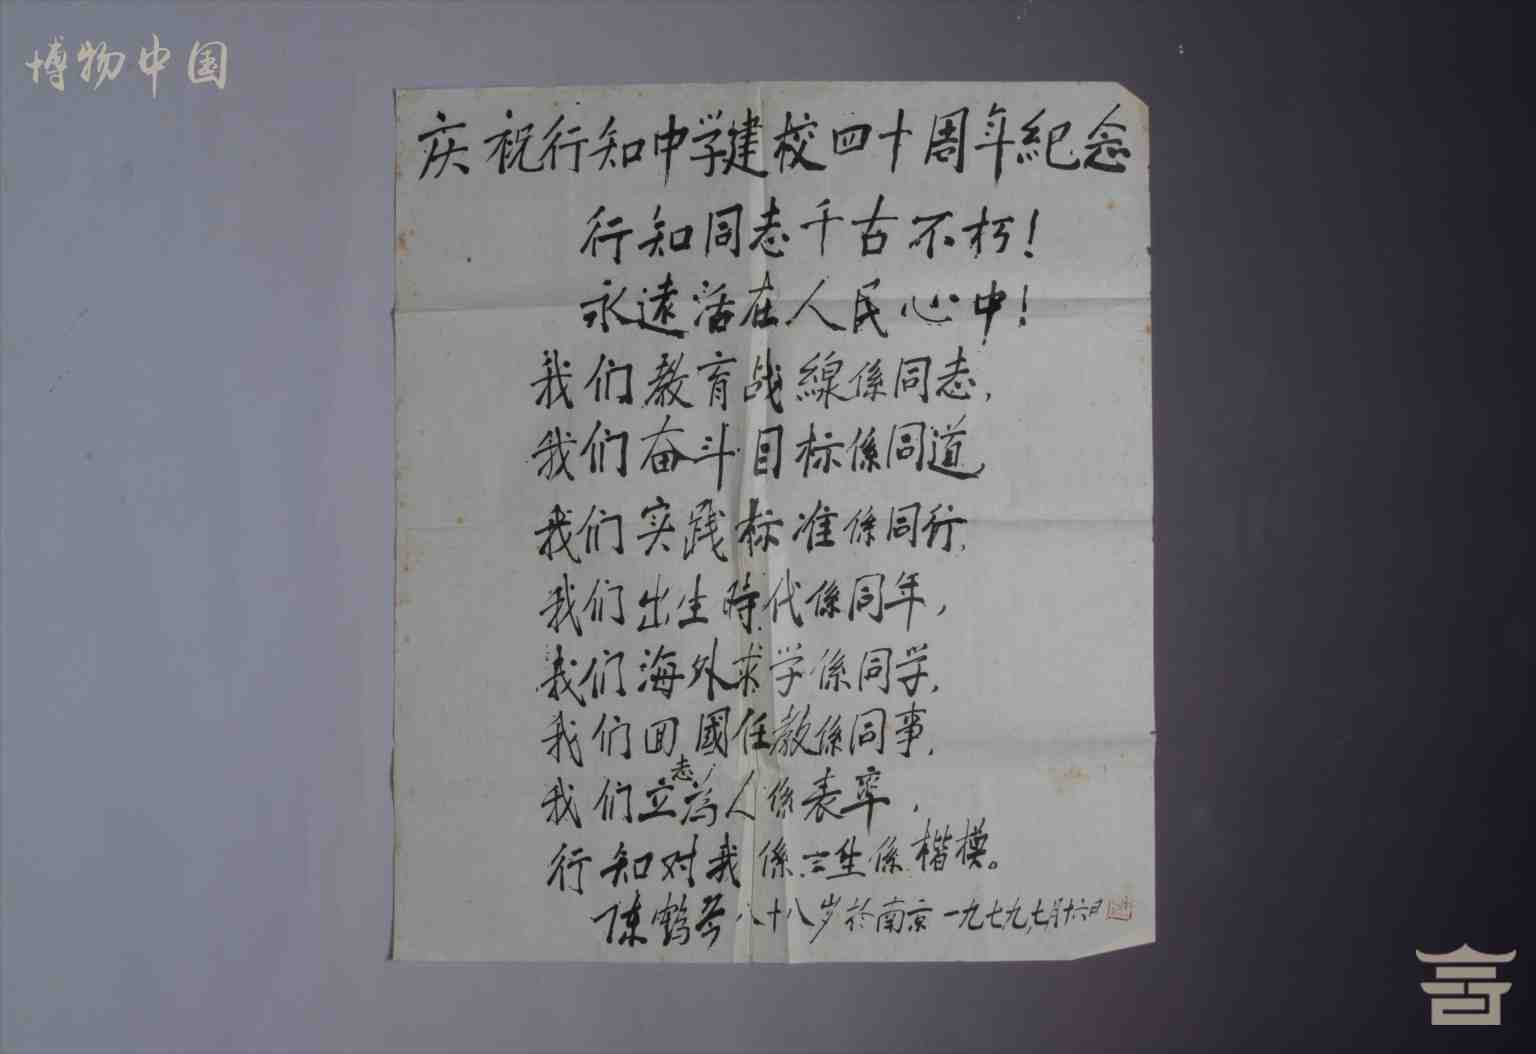 博物中国
庆祝行知中学建校四十周年紀念
行知同志千古不朽!
永遠活在人民心中!
我们教育战線係同志,
我们奋斗目标係同道,
我们实践标准係同行,
我们出生時代係同年,
我们海外求学係同学,
我们回國任教係同事,
我们立志為人係表率,
行知对我係 生係楷模。
陈鹤琴八十八岁於南京一九七九,七月十六日